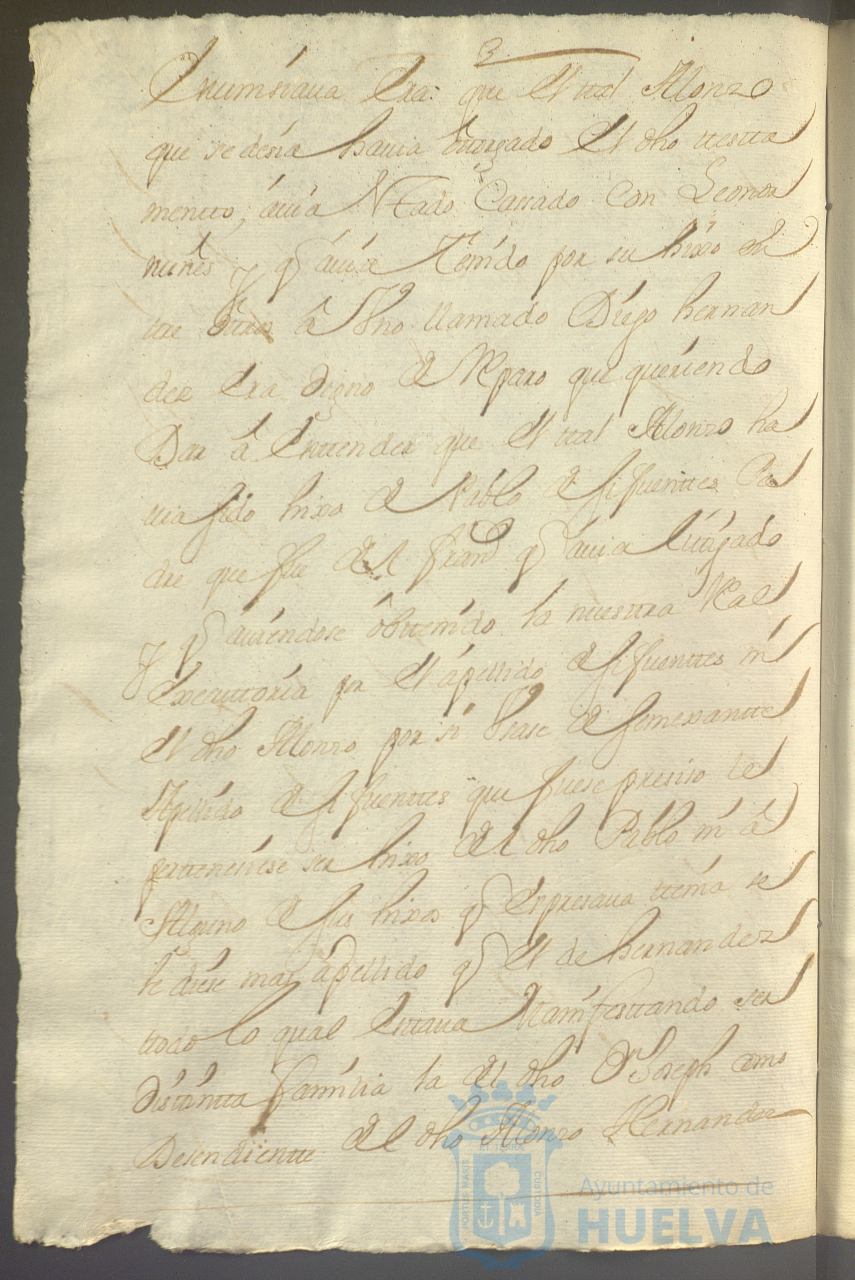 Enunsiaua Era que El tal Alonzo
que se desia hauia otorgado El dho testa
mentto, auia Estado Cassado Con Leonor
nuñes y q auia Tenido por su hixo en
tre ottros â Vno llamado Diego hernan
dez Era digno de Reparo que queriendo
Dar â Enttender que El tal Alonzo ha
uia sido hixo de Pablo de sifuenttes Pa
dre que fue del Fran.co q auia Litigado
y q auiendose obttenido la nuestra Real
Executtoria por El apellido de sifuenttes ni
El dho Alonzo por si Vsase de semexantte
Apellido de sifuenttes que fuese presiso le
perttenesiese ser hixo del dho Pablo ni â
Alguno de sus hixos q Expresaua ttenia se
le diese mas apellido q El de hernandez
ttodo lo qual Esttaua Manifesttando ser
Disttintta familia la del dho D Joseph como
Desendientte del dho Alonzo Hernandez
Ayuntamiento de
HUELVA